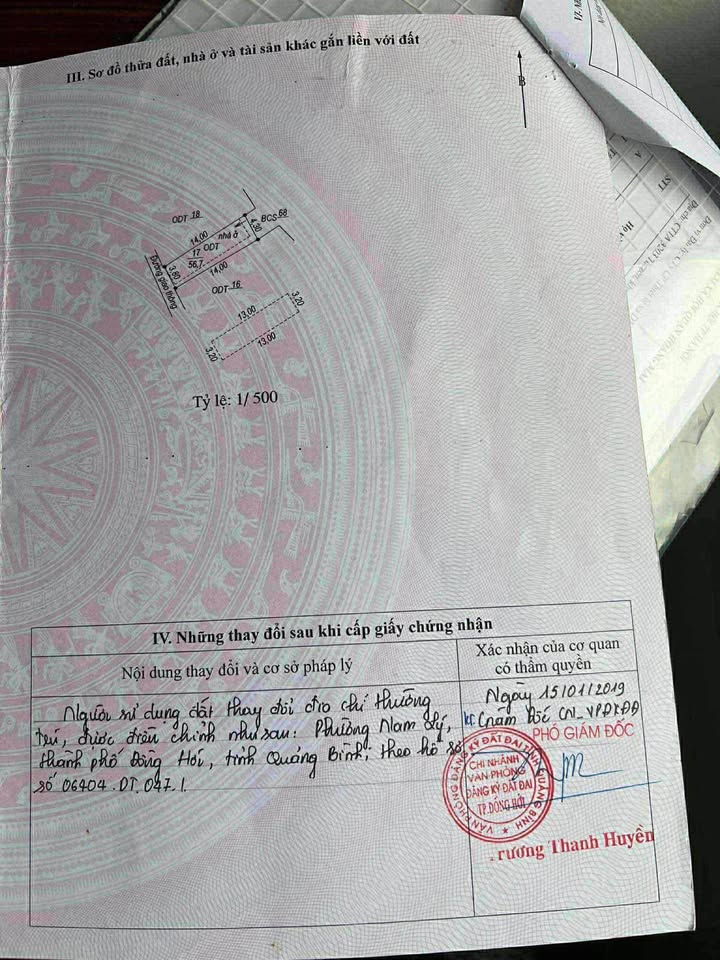 III. Sơ đồ thửa đất, nhà ở và tài sản khác gắn liền với đất
B
ODT 18
BCS 68
14,00
4,30
nhà ở
17 ODT
56,7
3,80
14,00
Đường giao thông
ODT 16
13,00
3,20
3,20
13,00
Tỷ lệ: 1/ 500
IV. Những thay đổi sau khi cấp giấy chứng nhận
Nội dung thay đổi và cơ sở pháp lý
Xác nhận của cơ quan
có thẩm quyền
Người sử dụng đất thay đổi địa chỉ thường
trú, được điều chỉnh như sau: Phường Nam Lý,
thành phố Đồng Hới, tỉnh Quảng Bình, theo hồ sơ
số 06404.DT.047.1.
Ngày 15/01/2019
KT Giám đốc CN_VPĐKĐĐ
PHÓ GIÁM ĐỐC
VĂN PHÒNG ĐĂNG KÝ ĐẤT ĐAI TỈNH QUẢNG BÌNH
CHI NHÁNH
VĂN PHÒNG
ĐĂNG KÝ ĐẤT ĐAI
TP.ĐỒNG HỚI
rương Thanh Huyền
STT